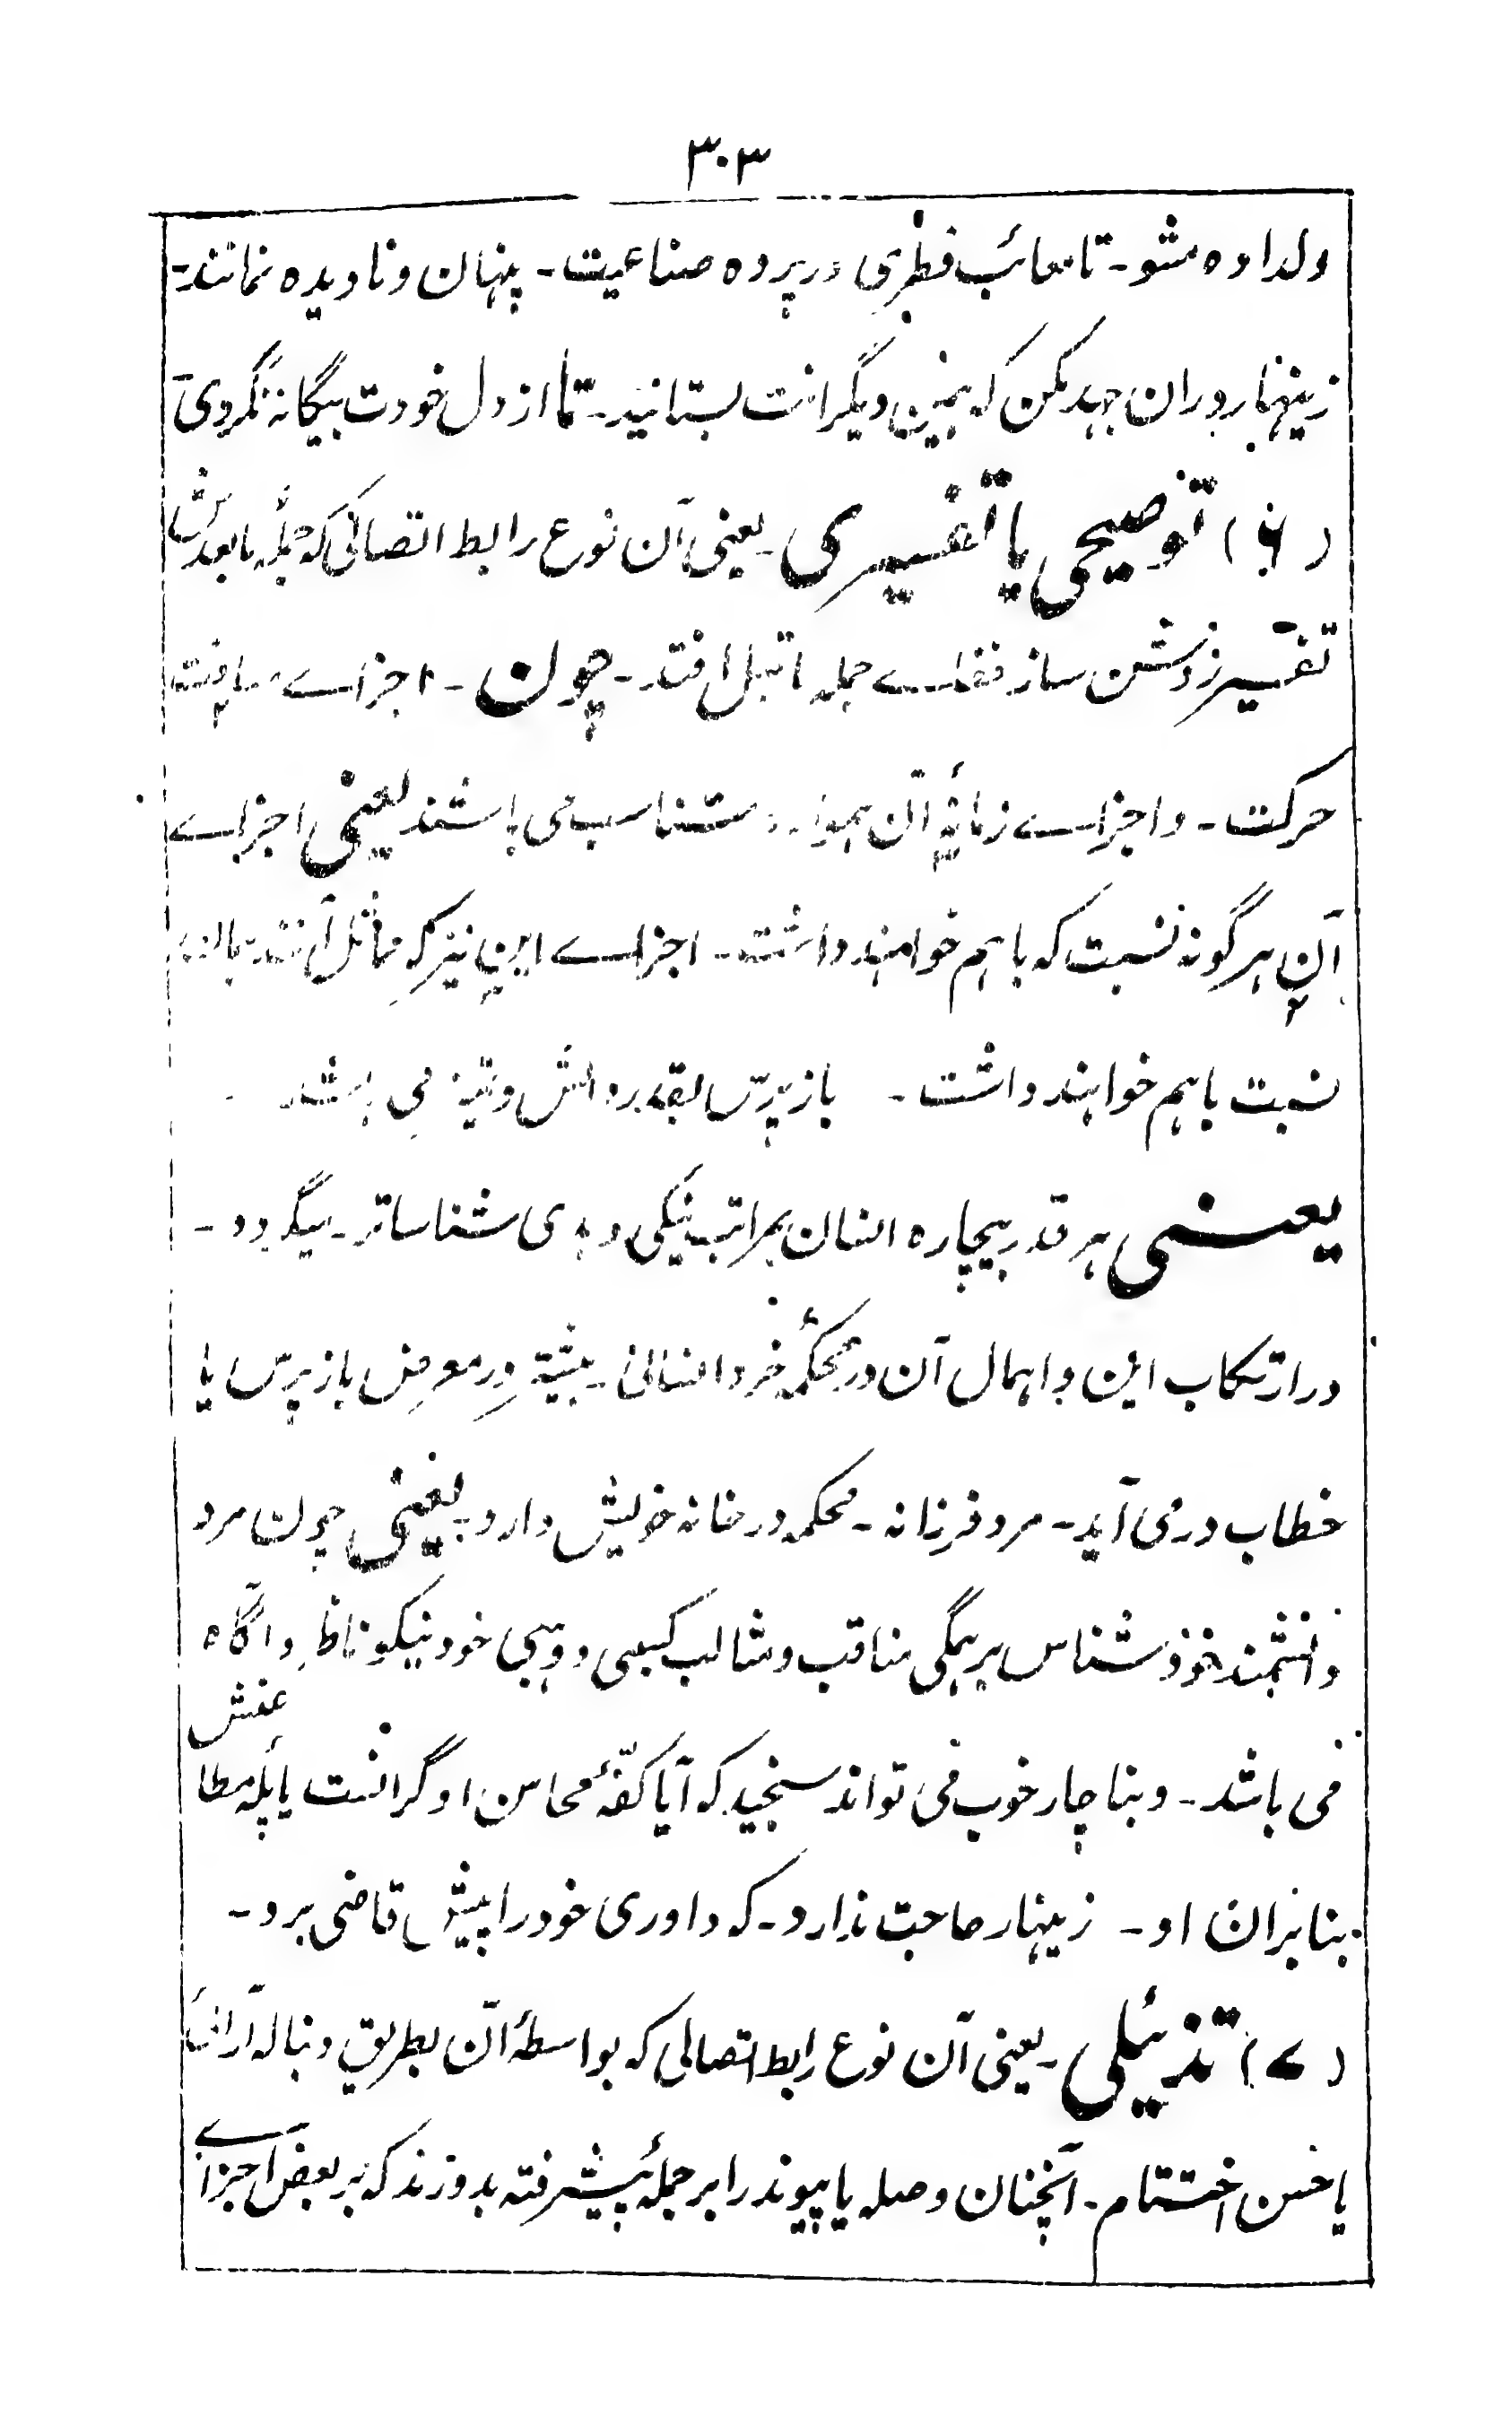 ۳۰۳
دلداده مشو۔ تا معائب فطری در پرده صناعیت۔ پنهان و نادیده نمانند۔
زینهار دران جهد مکن که همین دیگرانت بستانید۔ تا از دل خودت بیگانه نگردی۔
(۶) توضیحی یا تفسیری۔ یعنی آن نوع رابط اتصالی که جملۂ مابعدش
تفسیر روشن ساز فقراے جمله ماقبل افتد۔ چون۔ اجزاے مسافت
حرکت۔ و اجزاے زمانۂ آن همواره متناسب می باشند یعنی اجزاے
آن هرگونه نسبت که باهم خواهند داشت۔ اجزاے این نیز که مماثل آنند همان
نسبت باهم خواهند داشت۔ بازپرس بقدر دانش و تمیز می باشد۔
یعنی هر قدر بیچاره انسان بمراتب نیکی و بدی شناساتر۔ میگردد۔
در ارتکاب این و اهمال آن در محکمۂ خرد انسانی۔ بیشتر در معرض بازپرس یا
خطاب در می آید۔ مرد فرزانه۔ محکمه در خانه خویش دارد۔ یعنی چون مرد
دانشمند خود شناس بر همگی مناقب و مثالب کسبی و وهبی خود نیکو ناظر و آگاه
می باشد۔ و بناچار خوب می تواند سنجید که آیا کفّۂ محاسن او گرانست یا پله مطاعنش
بنابران او۔ زینهار حاجت ندارد۔ که داوری خود را پیش قاضی برد۔
(۷) تذئیلی۔ یعنی آن نوع رابط اتصالی که بواسطۂ آن بطریق دنباله آرائی
یا حسن اختتام۔ آنچنان وصله یا پیوند را بر جملۂ پیشرفته بدوزند که بر بعض اجزاے